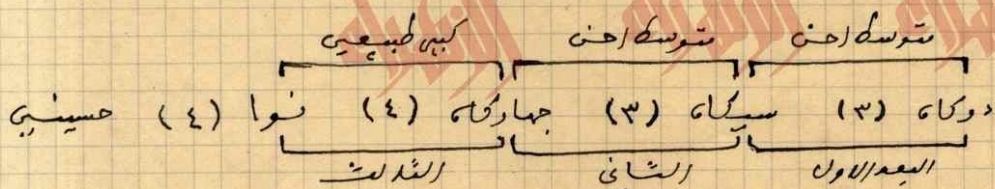 متوسط احن متوسط احن كبير طبيعي
دوكاه (٣) سيكاه (٣) جهاركاه (٤) نوا (٤) حسيني
البعد الاول الثاني الثالث